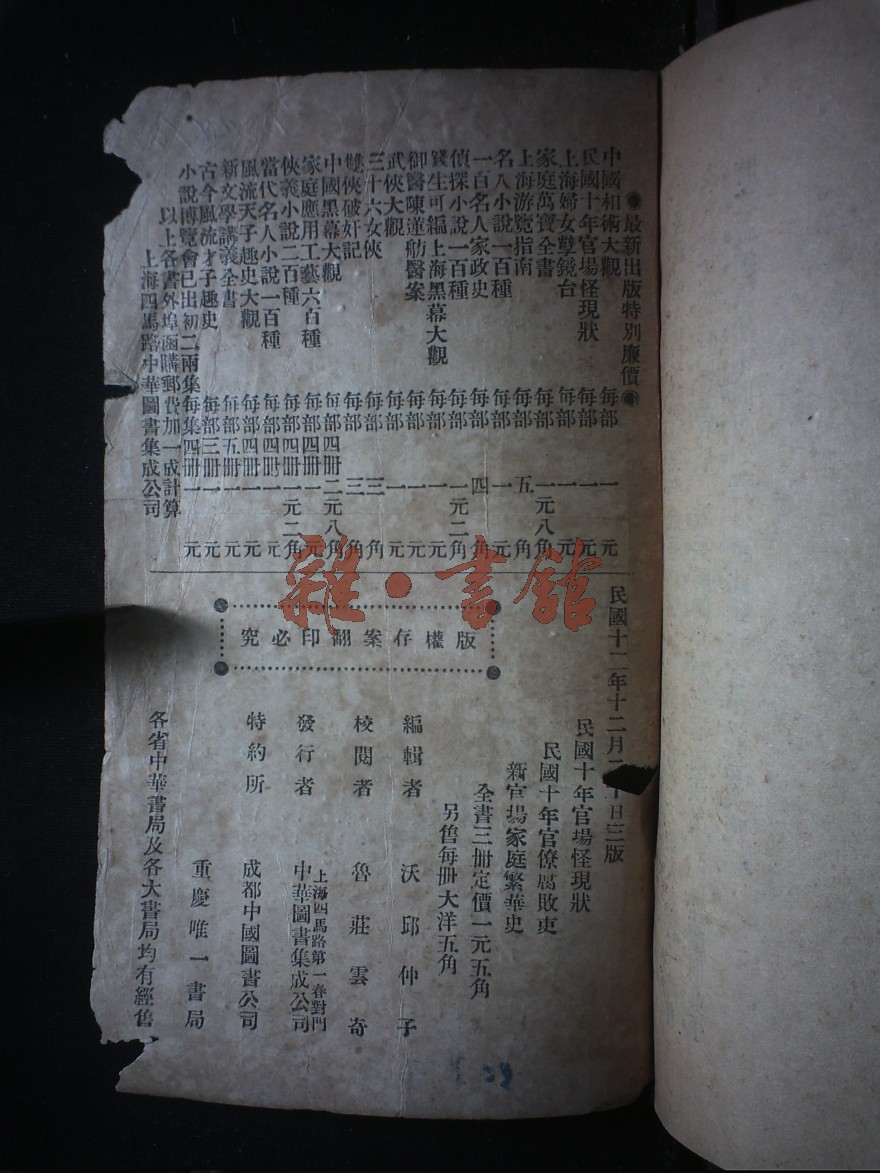 ●最新出版特別廉價●
中國相術大觀 每部 一元
民國十年官場怪現狀 每部 一元
上海婦女孽鏡台 每部 一元
家庭萬寶全書 每部 一元八角
上海游覽指南 每部 五角
名人小說一百種 每部 一元
一百名人家政史 每部 四角
偵探小說一百種 每部 一元二角
錢生可編上海黑幕大觀 每部 一元
御醫陳蓮舫醫案 每部 一元
武俠大觀 每部 一元
三十六女俠 每部 三角
雙俠破奸記 每部 三角
中國黑幕大觀 每部四冊 二元八角
家庭應用工藝六百種 每部四冊 一元
俠義小說二百種 每部四冊 一元二角
當代名人小說一百種 每部四冊 一元
風流天子趣史大觀 每部四冊 一元
新文學講義全書 每部五冊 一元
古今風流才子趣史 每部三冊 一元
小說博覽會已出初二兩集 每集四冊 一元
以上各書外埠函購郵費加一成計算
上海四馬路中華圖書集成公司
民國十二年十二月 十日三版
版權存案翻印必究
民國十年官場怪現狀
民國十年官僚腐敗史
新官場家庭繁華史
全書三冊定價一元五角
另售每冊大洋五角
編輯者 沃邱仲子
校閱者 魯莊雲奇
發行者 上海四馬路第一春對門
中華圖書集成公司
特約所 成都中國圖書公司
重慶唯一書局
各省中華書局及各大書局均有經售
雜·書館